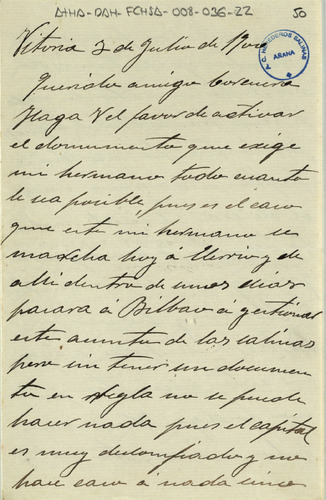 ATHA-DAH-FCHSA-008-036-22
50
Vitoria 2 de Julio de 1900
P. C. HEREDEROS SALINAS
ARANA
Querido amigo Lorenzo
Haga V el favor de activar
el documento que exige
mi hermano todo cuanto
le sea posible, pues es el caso
que este mi hermano se
marcha hoy á Elorrio y de
alli dentro de unos dias
pasara á Bilbao á gestionar
este asunto de las salinas
pero sin tener un documen
to en regla no se puede
hacer nada pues el capital
es muy desconfiado y no
hace caso á nada sino